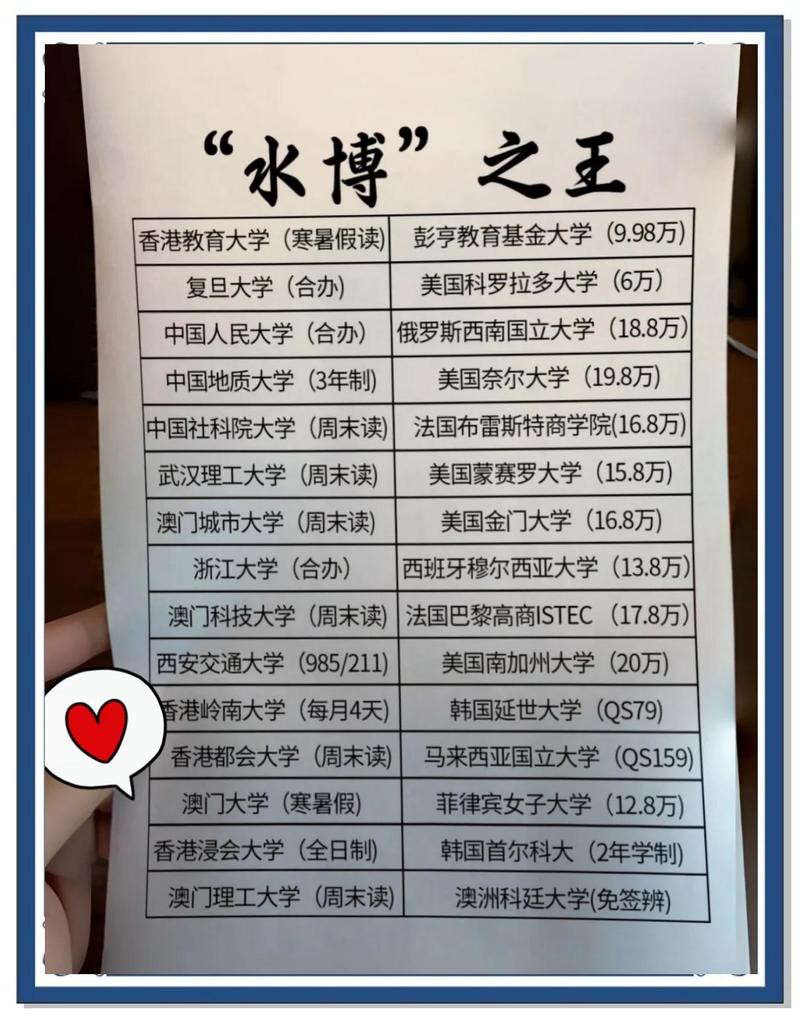 “水博”之王
香港教育大学（寒暑假读) 彭亨教育基金大学（9.98万)
复旦大学（合办) 美国科罗拉多大学（6万）
中国人民大学（合办） 俄罗斯西南国立大学（18.8万）
中国地质大学（3年制) 美国奈尔大学（19.8万)
中国社科院大学（周末读) 法国布雷斯特商学院(16.8万)
武汉理工大学（周末读) 美国蒙赛罗大学（15.8万)
澳门城市大学（周末读) 美国金门大学（16.8万)
浙江大学（合办） 西班牙穆尔西亚大学（13.8万）
澳门科技大学（周末读) 法国巴黎高商ISTEC（17.8万）
西安交通大学（985/211) 美国南加州大学（20万)
香港岭南大学（每月4天) 韩国延世大学（QS79)
香港都会大学（周末读) 马来西亚国立大学（QS159)
澳门大学（寒暑假) 菲律宾女子大学（12.8万)
香港浸会大学（全日制) 韩国首尔科大（2年学制)
澳门理工大学（周末读) 澳洲科廷大学(免签辨)